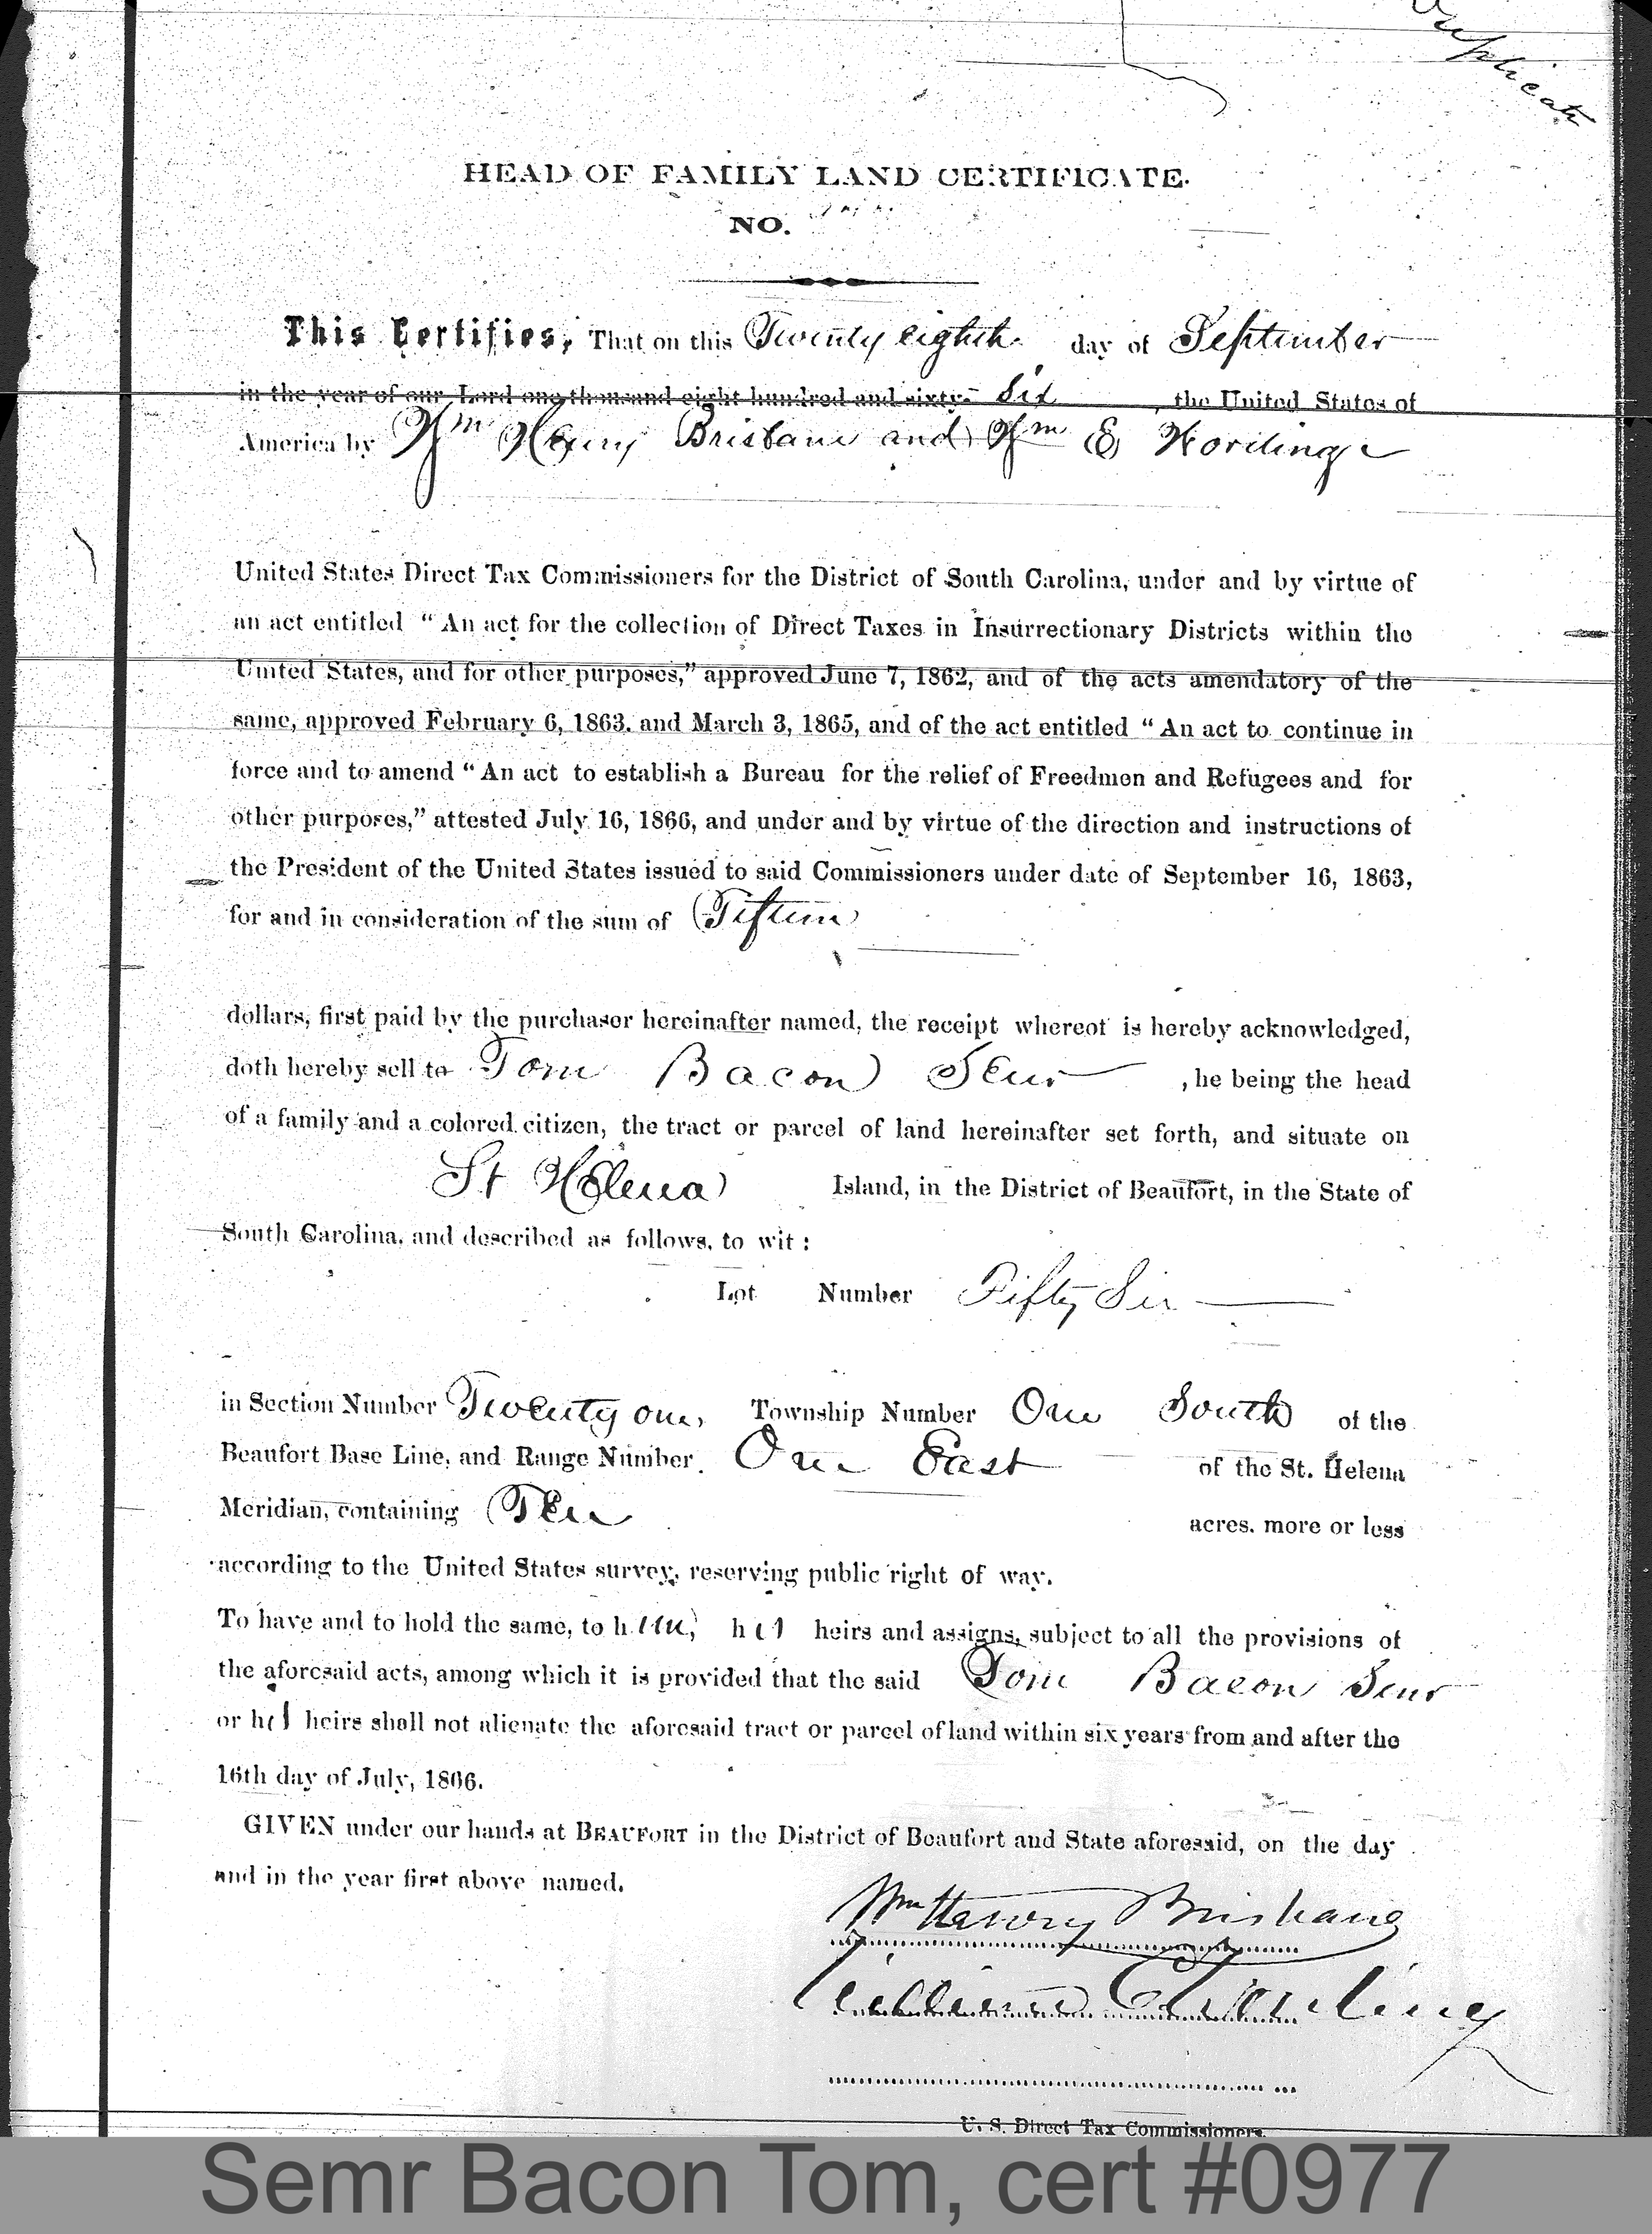 Duplicate
HEAD OF FAMILY LAND CERTIFICATE.
NO.
This Certifies, That on this Twenty eighth day of September
in the year of our Lord one thousand eight hundred and sixty- Six , the United States of
America by Wm Henry Brisbane and Wm E Wording
United States Direct Tax Commissioners for the District of South Carolina, under and by virtue of
an act entitled “An act for the collection of Direct Taxes in Insurrectionary Districts within the
United States, and for other purposes,” approved June 7, 1862, and of the acts amendatory of the
same, approved February 6, 1863, and March 3, 1865, and of the act entitled “An act to continue in
force and to amend “An act to establish a Bureau for the relief of Freedmen and Refugees and for
other purposes,” attested July 16, 1866, and under and by virtue of the direction and instructions of
the President of the United States issued to said Commissioners under date of September 16, 1863,
for and in consideration of the sum of Fifteen
dollars, first paid by the purchaser hereinafter named, the receipt whereof is hereby acknowledged,
doth hereby sell to Tom Bacon Senr , he being the head
of a family and a colored citizen, the tract or parcel of land hereinafter set forth, and situate on
St Helena Island, in the District of Beaufort, in the State of
South Carolina, and described as follows, to wit:
Lot Number Fifty Six
in Section Number Twenty one, Township Number One South of the
Beaufort Base Line, and Range Number. One East of the St. Helena
Meridian, containing Ten acres. more or less
according to the United States survey, reserving public right of way.
To have and to hold the same, to him, his heirs and assigns, subject to all the provisions of
the aforesaid acts, among which it is provided that the said Tom Bacon Senr
or his heirs shall not alienate the aforesaid tract or parcel of land within six years from and after the
16th day of July, 1866.
GIVEN under our hands at BEAUFORT in the District of Beaufort and State aforesaid, on the day
and in the year first above named.
Wm Henry Brisbane
William E Wording
U. S. Direct Tax Commissioners.
Semr Bacon Tom, cert #0977